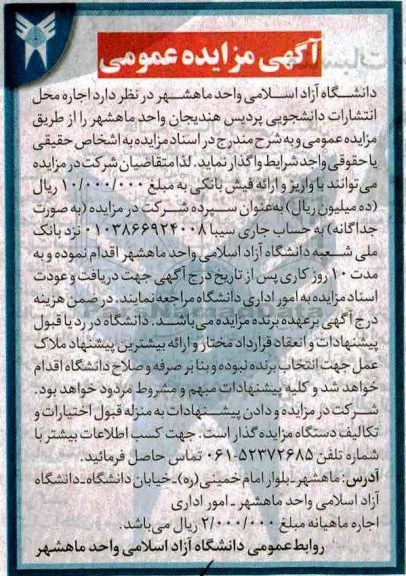 آگهی مزایده عمومی
دانشگاه آزاد اسلامی واحد ماهشهر در نظر دارد اجاره محل
انتشارات دانشجویی پردیس هندیجان واحد ماهشهر را از طریق
مزایده عمومی و به شرح مندرج در اسناد مزایده به اشخاص حقیقی
یا حقوقی واحد شرایط واگذار نماید. لذا متقاضیان شرکت در مزایده
می توانند با واریز و ارائه فیش بانکی به مبلغ ۱۰/۰۰۰/۰۰۰ ریال
(ده میلیون ریال) به عنوان سپرده شرکت در مزایده (به صورت
جداگانه) به حساب جاری سیبا ۰۱۰۳۸۶۶۹۲۴۰۰۸ نزد بانک
ملی شعبه دانشگاه آزاد اسلامی واحد ماهشهر اقدام نموده و به
مدت ۱۰ روز کاری پس از تاریخ درج آگهی جهت دریافت و عودت
اسناد مزایده به امور اداری دانشگاه مراجعه نمایند. در ضمن هزینه
درج آگهی بر عهده برنده مزایده می باشد. دانشگاه در رد یا قبول
پیشنهادات و انعقاد قرارداد مختار و ارائه بیشترین پیشنهاد ملاک
عمل جهت انتخاب برنده نبوده و بنا بر صرفه و صلاح دانشگاه اقدام
خواهد شد و کلیه پیشنهادات مبهم و مشروط مردود خواهد بود.
شرکت در مزایده و دادن پیشنهادات به منزله قبول اختیارات و
تکالیف دستگاه مزایده گذار است. جهت کسب اطلاعات بیشتر با
شماره تلفن ۵۲۳۷۲۶۸۵-۰۶۱ تماس حاصل فرمائید.
آدرس: ماهشهر-بلوار امام خمینی(ره)-خیابان دانشگاه-دانشگاه
آزاد اسلامی واحد ماهشهر - امور اداری
اجاره ماهیانه مبلغ ۲/۰۰۰/۰۰۰ ریال می باشد.
روابط عمومی دانشگاه آزاد اسلامی واحد ماهشهر